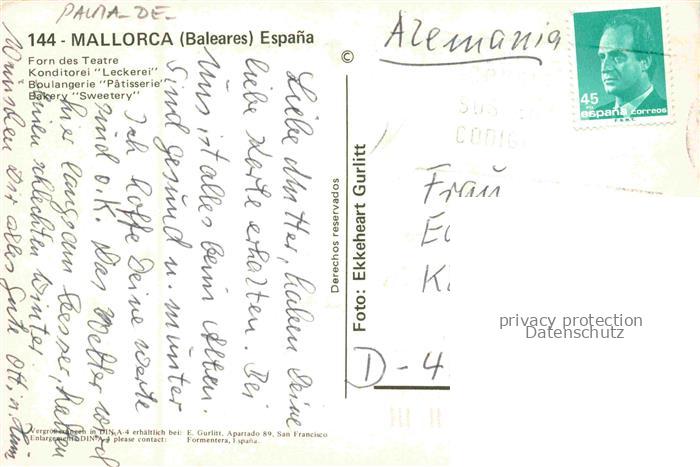 PALMA-DE-
144 - MALLORCA (Baleares) España
Forn des Teatre
Konditorei "Leckerei"
Boulangerie "Pâtisserie"
Bakery "Sweetery"
©
Alemania
45
PTA
españa correos
CODIG
Liebe Mutter, haben Deine
liebe Karte erhalten. Bei
uns ist alles beim Alten.
Sind gesund u. munter
Ich hoffe Deine Werte
sind o.K. Das Wetter wird
hier langsam besser, hatten
einen schlechten Winter.
Wünschen Dir alles Gute
Derechos reservados
Foto: Ekkeheart Gurlitt
Frau
D-4
privacy protection
Datenschutz
Vergrößerungen in DIN A-4 erhältlich bei: E. Gurlitt, Apartado 89, San Francisco
Enlargements DIN A-4 please contact: Formentera, España.